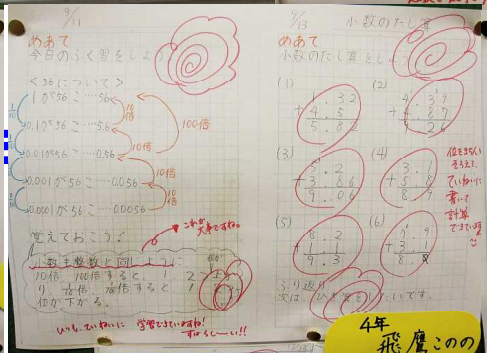 9/11
めあて
今日のふく習をしよう
<56について>
1が56こ…56
0.1が56こ…5.6
0.01が56こ…0.56
0.001が56こ…0.056
0.0001が56こ…0.0056
10倍
100倍
10倍
10倍
覚えておこう!
これが大事ですね。
小数も整数と同じように
10倍、100倍すると、1
位が下がる。
いつも、ていねいに 学習できていますね!
すばらしーい!!
9/13 小数のたし算
めあて
小数のたし算をしよう
(1)
1.32
+4.5
5.82
(2)
(3)
5.2
+3.86
9.06
(4)
3.1
+5.8
8.9
(5)
8.2
+1.1
9.3
(6)
位をきちんとそろえて、
ていねいに
書いて
計算
できています
ふり返り
次は、ひき算をしたいです。
4年
飛鷹このの